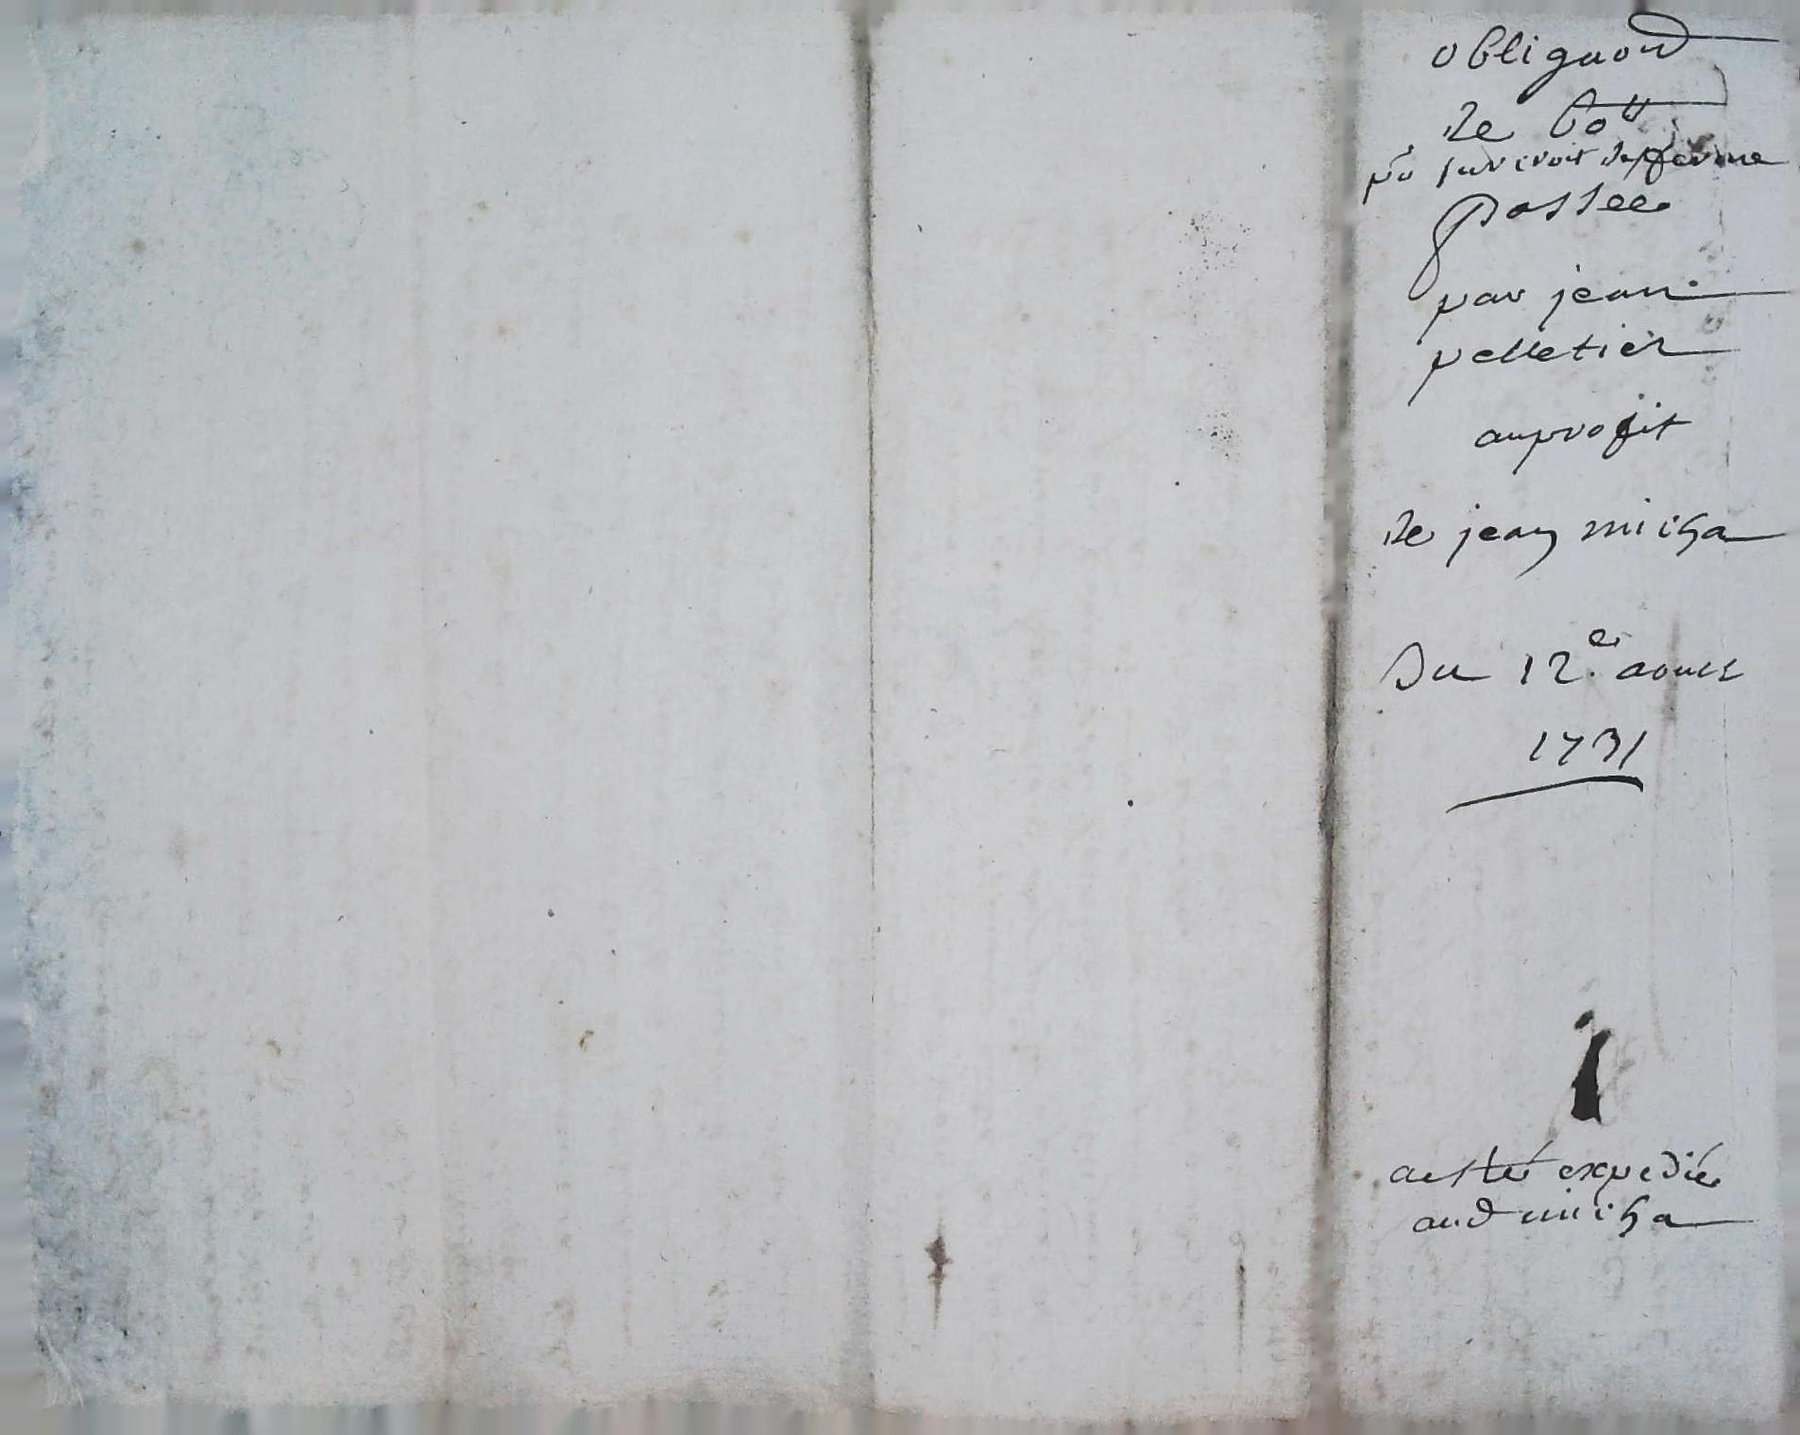 obligaon
de 60tt
pr surcroit de ferme
passée
par jean
pelletier
au profit
de jean micha
Du 12.e aoust
1731
a esté expedié
aud micha